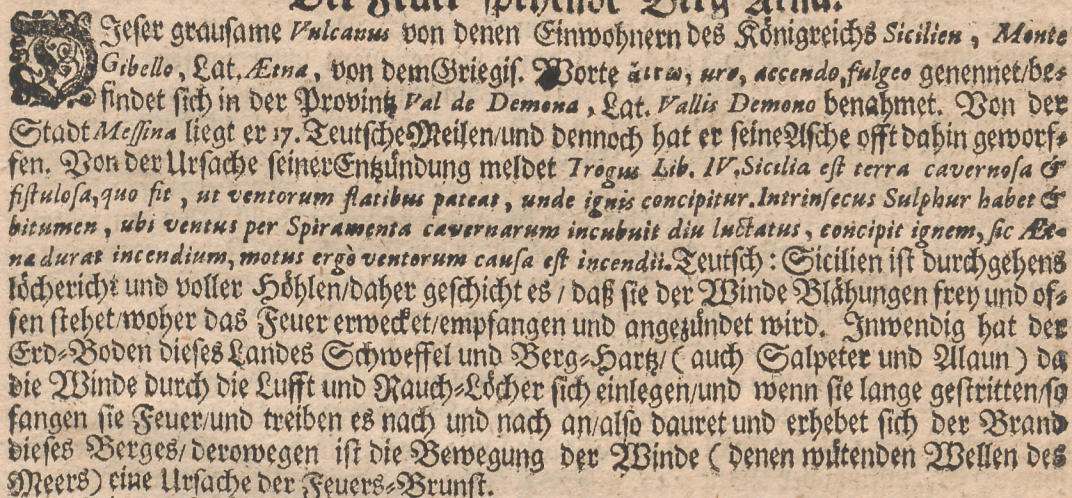 Berg Ætna.
DIeser grausame Vulcanus von denen Einwohnern des Königreichs Sicilien, Monte
Gibello, Lat. Ætna, von dem Griegis. Worte ἄιτω, uro, accendo, fulgeo genennet/be-
findet sich in der Provintz Val de Demona, Lat. Vallis Demono benahmet. Von der
Stadt Messina liegt er 17. Teutsche Meilen/und dennoch hat er seine Asche offt dahin geworf-
fen. Von der Ursache seiner Entzündung meldet Trogus Lib. IV. Sicilia est terra cavernosa &
fistulosa, quo fit, ut ventorum flatibus pateat, unde ignis concipitur. Intrinsecus Sulphur habet &
bitumen, ubi ventus per Spiramenta cavernarum incubuit diu luctatus, concipit ignem, sic Æt-
na durat incendium, motus ergò ventorum causa est incendii. Teutsch: Sicilien ist durchgehens
löchericht und voller Höhlen/daher geschicht es/daß sie der Winde Blähungen frey und of-
fen stehet/woher das Feuer erwecket/empfangen und angezündet wird. Inwendig hat der
Erd-Boden dieses Landes Schweffel und Berg-Hartz/(auch Salpeter und Alaun) da
die Winde durch die Lufft und Rauch-Löcher sich einlegen/und wenn sie lange gestritten/so
fangen sie Feuer/und treiben es nach und nach an/also dauret und erhebet sich der Brand
dieses Berges/derowegen ist die Bewegung der Winde (denen wütenden Wellen des
Meers) eine Ursache der Feuers-Brunst.